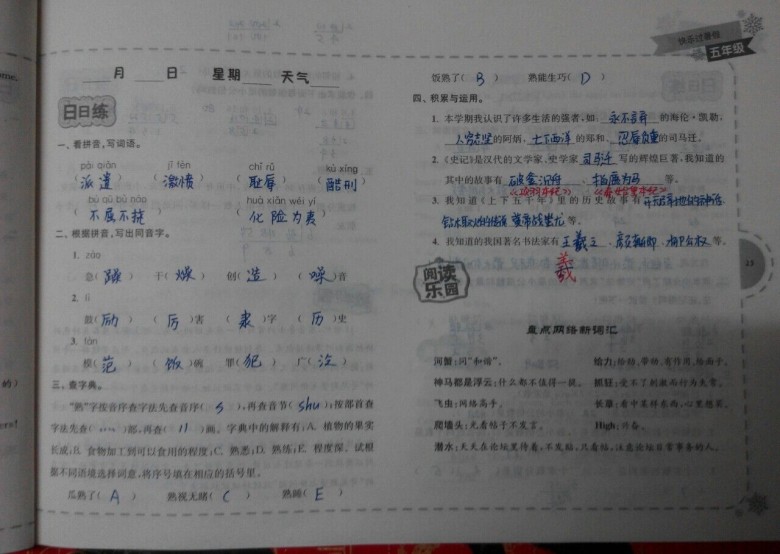 快乐过暑假
五年级
月 日 星期 天气
日日练
一、看拼音,写词语。
pài qiǎn jī fèn chǐ rǔ kù xíng
(派遣) (激愤) (耻辱) (酷刑)
bù qū bù náo huà xiǎn wéi yí
(不屈不挠) (化险为夷)
二、根据拼音,写出同音字。
1. zào
急(躁) 干(燥) 创(造) (噪)音
2. lì
鼓(励) (厉)害 (隶)字 (历)史
3. fàn
模(范) (饭)碗 罪(犯) 广(泛)
三、查字典。
“熟”字按音序查字法先查音序(S),再查音节(shu);按部首查
字法先查(灬)部,再查(11)画。字典中的解释有:A. 植物的果实
长成;B. 食物加工到可以食用的程度;C. 熟悉;D. 熟练;E. 程度深。试根
据不同语境选择词意,将序号填在相应的括号里。
瓜熟了(A) 熟视无睹(C) 熟睡(E)
饭熟了(B) 熟能生巧(D)
四、积累与运用。
1. 本学期我认识了许多生活的强者,如:永不言弃的海伦·凯勒、
人穷志坚的阿炳、七下西洋的郑和、忍辱负重的司马迁。
2.《史记》是汉代的文学家、史学家司马迁写的辉煌巨著,我知道的
其中的故事有破釜沉舟、指鹿为马等。
《项羽本纪》 《秦始皇本纪》
3. 我知道《上下五千年》里的历史故事有开天辟地的神话
钻木取火的传说 黄帝战蚩尤等。
4. 我知道的我国著名书法家有王羲之、颜真卿、等。
羲
阅读乐园
盘点网络新词汇
河蟹:同“和谐”。
给力:给劲、带劲,有作用、给面子。
神马都是浮云:什么都不值得一提。
抓狂:受不了刺激而行为失常。
飞虫:网络高手。
长草:看中某样东西,心里想买。
爬墙头:光看帖子不发言。
High:兴奋。
潜水:天天在论坛里待着,不发帖,只看帖,注意论坛日常事务的人。
23